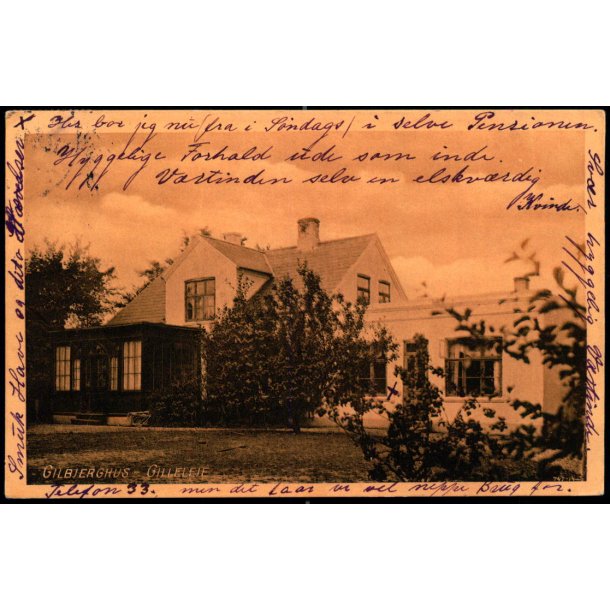 Her bor jeg nu (fra i Søndags) i selve Pensionen.
Hyggelige Forhold ude som inde.
Værtinden selv en elskværdig
Kvinde.
hyggelig
Smuk Have og dito Værelser x
GILBJERGHUS - GILLELEJE
Telefon 33. men det faar vi vel neppe Brug for.